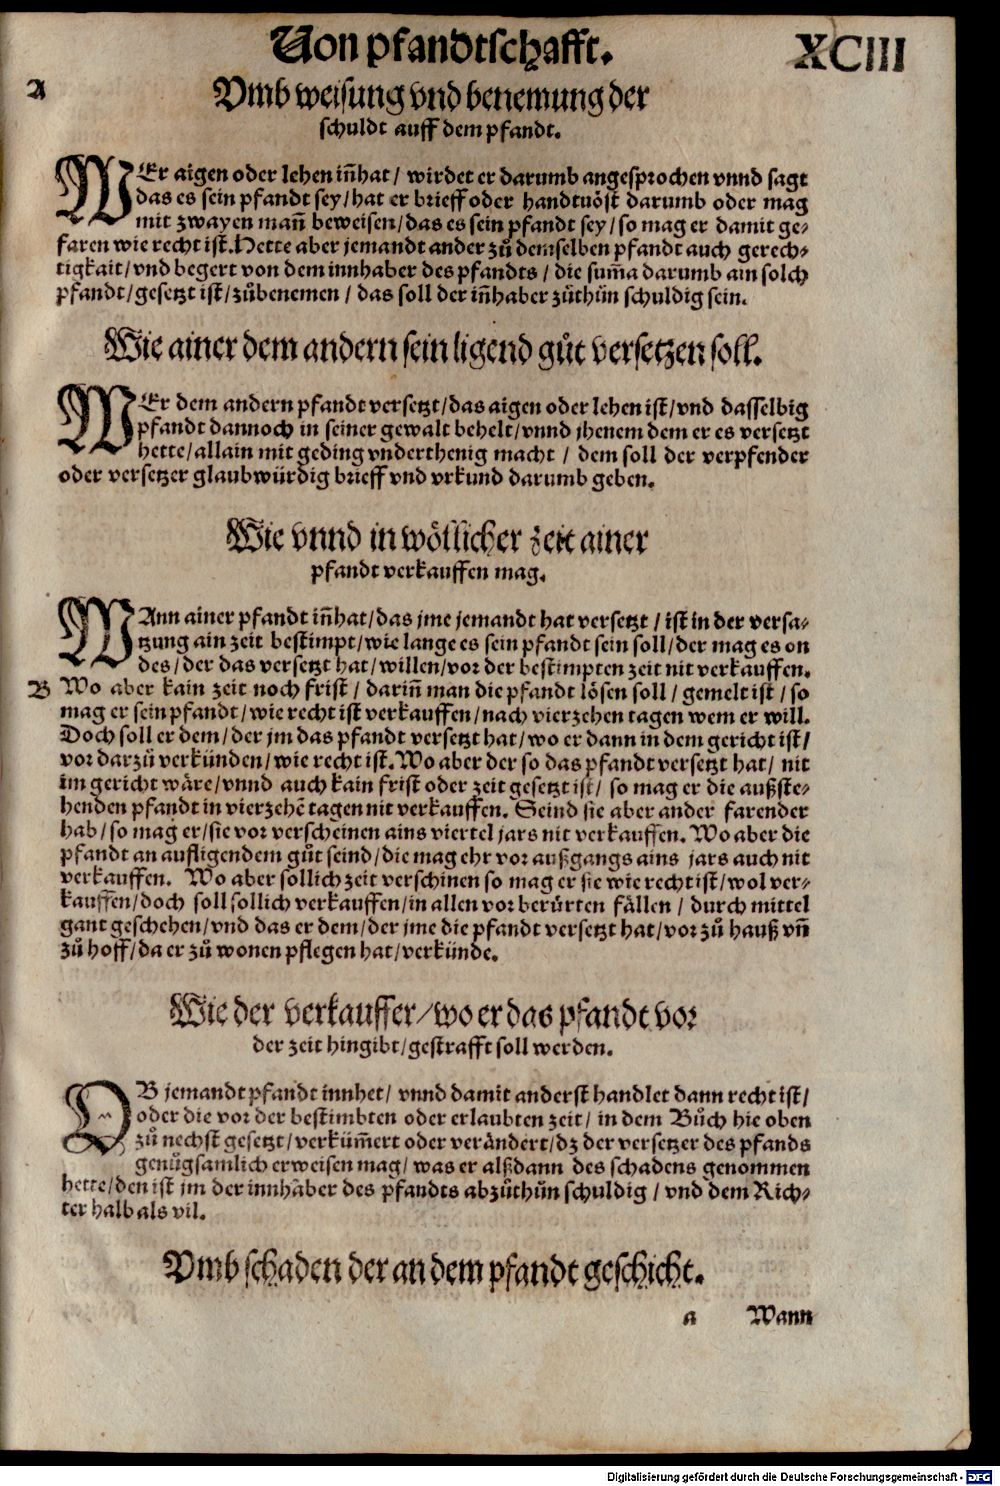 Von pfandtschafft.
XCIII
A
Vmb weisung vnd benemung der
schuldt auff dem pfandt.
WEr aigen oder lehen iñhat / wirdet er darumb angesprochen vnnd sagt
das es sein pfandt sey / hat er brieff oder handtuöst darumb oder mag
mit zwayen mañ beweisen / das es sein pfandt sey / so mag er damit ge-
faren wie recht ist. Hette aber jemandt ander zů demselben pfandt auch gerech-
tigkait / vnd begert von dem innhaber des pfandts / die sum̃a darumb ain solch
pfandt / gesetzt ist / zůbenemen / das soll der iñhaber zůthůn schuldig sein.
Wie ainer dem andern sein ligend gůt versetzen soll.
WEr dem andern pfandt versetzt / das aigen oder lehen ist / vnd dasselbig
pfandt dannoch in seiner gewalt behelt / vnnd jhenem dem er es versetzt
hette / allain mit geding vnderthenig macht / dem soll der verpfender
oder versetzer glaubwürdig brieff vnd vrkund darumb geben.
Wie vnnd in wöllicher zeit ainer
pfandt verkauffen mag.
WAnn ainer pfandt iñhat / das jme jemandt hat versetzt / ist in der versa-
tzung ain zeit bestimpt / wie lange es sein pfandt sein soll / der mag es on
des / der das versetzt hat / willen / vor der bestimpten zeit nit verkauffen.
B Wo aber kain zeit noch frist / dariñ man die pfandt lösen soll / gemelt ist / so
mag er sein pfandt / wie recht ist verkauffen / nach vierzehen tagen wem er will.
Doch soll er dem / der jm das pfandt versetzt hat / wo er dann in dem gericht ist /
vor darzů verkünden / wie recht ist. Wo aber der so das pfandt versetzt hat / nit
im gericht wäre / vnnd auch kain frist oder zeit gesetzt ist / so mag er die außste-
henden pfandt in vierzehẽ tagen nit verkauffen. Seind sie aber ander farender
hab / so mag er / sie vor verscheinen ains viertel jars nit verkauffen. Wo aber die
pfandt an aufligendem gůt seind / die mag ehr vor außgangs ains jars auch nit
verkauffen. Wo aber sollich zeit verschinen so mag er sie wie recht ist / wol ver-
kauffen / doch soll sollich verkauffen / in allen vor berürten fällen / durch mittel
gant geschehen / vnd das er dem / der jme die pfandt versetzt hat / vor zů hauß vñ
zů hoff / da er zů wonen pflegen hat / verkünde.
Wie der verkauffer / wo er das pfandt vor
der zeit hingibt / gestrafft soll werden.
OB jemandt pfandt innhet / vnnd damit anderst handlet dann recht ist /
oder die vor der bestimbten oder erlaubten zeit / in dem Bůch hie oben
zů nechst gesetzt / verküm̃ert oder verändert / dz der versetzer des pfands
genůgsamlich erweisen mag / was er alßdann des schadens genommen
hette / den ist jm der innhaber des pfandts abzůthůn schuldig / vnd dem Rich-
ter halb als vil.
Vmb schaden der an dem pfandt geschicht.
a Wann
Digitalisierung gefördert durch die Deutsche Forschungsgemeinschaft - DFG